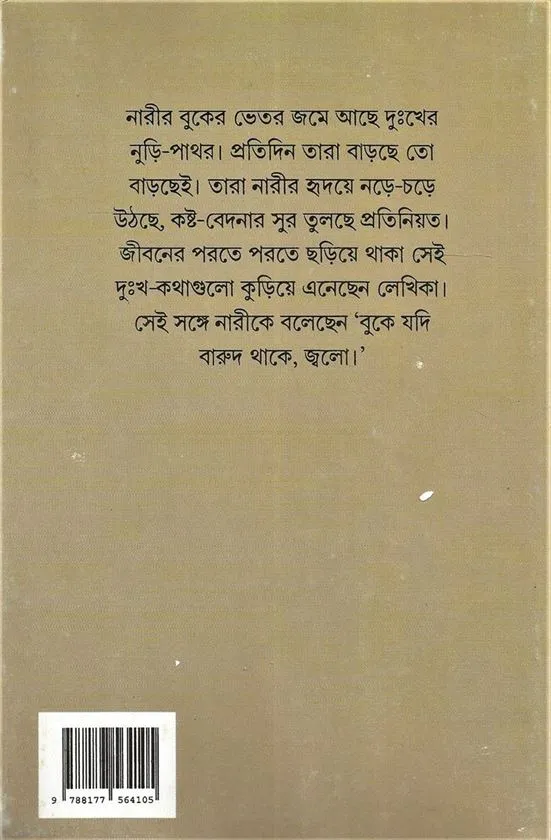 নারীর বুকের ভেতর জমে আছে দুঃখের
নুড়ি-পাথর। প্রতিদিন তারা বাড়ছে তো
বাড়ছেই। তারা নারীর হৃদয়ে নড়ে-চড়ে
উঠছে, কষ্ট-বেদনার সুর তুলছে প্রতিনিয়ত।
জীবনের পরতে পরতে ছড়িয়ে থাকা সেই
দুঃখ-কথাগুলো কুড়িয়ে এনেছেন লেখিকা।
সেই সঙ্গে নারীকে বলেছেন ‘বুকে যদি
বারুদ থাকে, জ্বলো।’
9 788177 564105